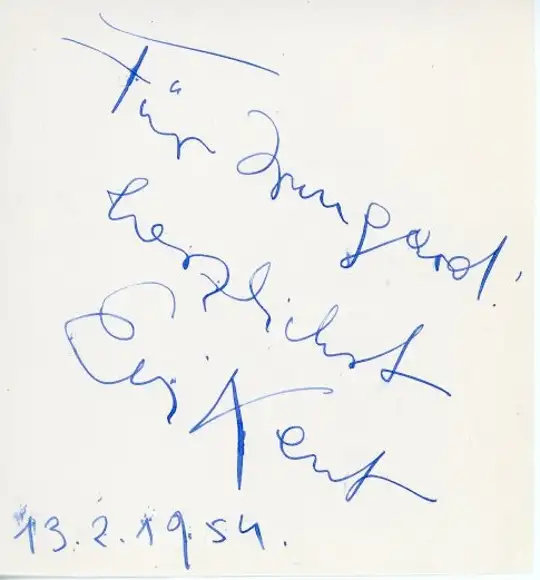 Für Irmgard!
herzlichst
Kent
13.2.1954.